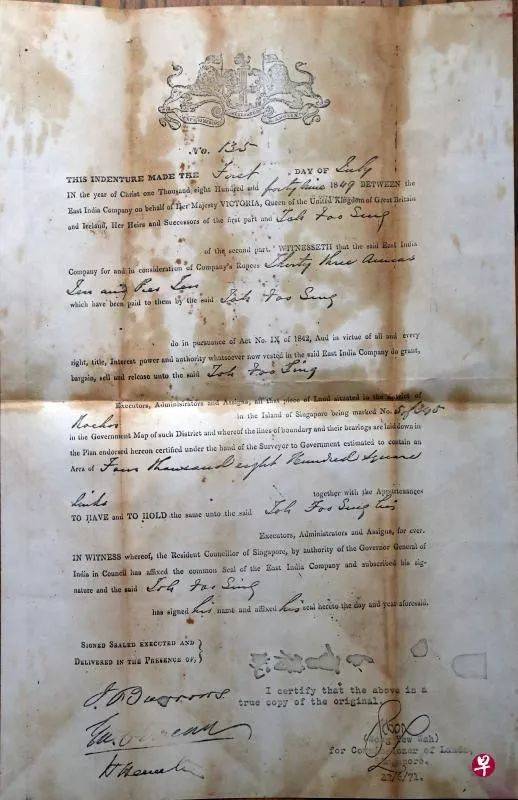 No. 135
THIS INDENTURE MADE THE First DAY OF July
IN the year of Christ one Thousand eight Hundred and forty nine 1849 BETWEEN the
East India Company on behalf of Her Majesty VICTORIA, Queen of the United Kingdom of Great Britain
and Ireland, Her Heirs and Successors of the first part and Toh Foo Sing
of the second part. WITNESSETH that the said East India
Company for and in consideration of Company's Rupees Thirty three Annas
Ten and Pies Ten
which have been paid to them by the said Toh Foo Sing
do in pursuance of Act No. IX of 1842, And in virtue of all and every
right, title, Interest power and authority whatsoever now vested in the said East India Company do grant,
bargain, sell and release unto the said Toh Foo Sing
Executors, Administrators and Assigns, all that piece of Land situated in the district of
in the Island of Singapore being marked No.
in the Government Map of such District and whereof the lines of boundary and their bearings are laid down in
the Plan endorsed hereon certified under the hand of the Surveyor to Government estimated to contain an
Area of Four thousand eight Hundred Square
Links together with the Appurtenances
TO HAVE and TO HOLD the same unto the said Toh Foo Sing his
Executors, Administrators and Assigns, for ever.
IN WITNESS whereof, the Resident Councillor of Singapore, by authority of the Governor General of
India in Council has affixed the common Seal of the East India Company and subscribed his sig-
nature and the said Toh Foo Sing
has signed his name and affixed his seal hereto the day and year aforesaid.
SIGNED SEALED EXECUTED AND
DELIVERED IN THE PRESENCE OF,
I certify that the above is a
true copy of the original.
for Commissioner of Lands,
Singapore.
早